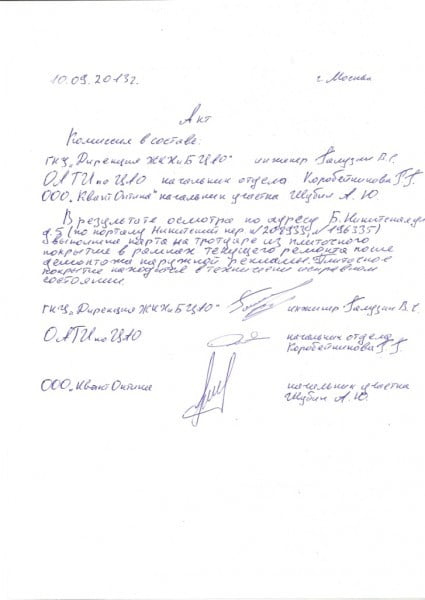 10.09.2013г. г. Москва
Акт
Комиссия в составе:
ГКУ „Дирекция ЖКХиБ ЦАО" инженер Галузин В.С.
ОАТИ по ЦАО начальник отдела Коробейникова Г.Г.
ООО „КвантОптика" начальник участка Шубин А.Ю.
В результате осмотра по адресу Б. Никитская ул.
д.5 (по порталу Никитский пер. №2089339, №196335)
выполнена карта на тротуаре из плиточного
покрытие в рамках текущего ремонта после
демонтажа наружной рекламы. Плиточное
покрытие находится в технически исправном
состоянии.
ГКУ „Дирекция ЖКХиБ ЦАО" инженер Галузин В.С.
ОАТИ по ЦАО начальник отдела
Коробейникова Г.Г.
ООО „КвантОптика начальник участка
Шубин А.Ю.